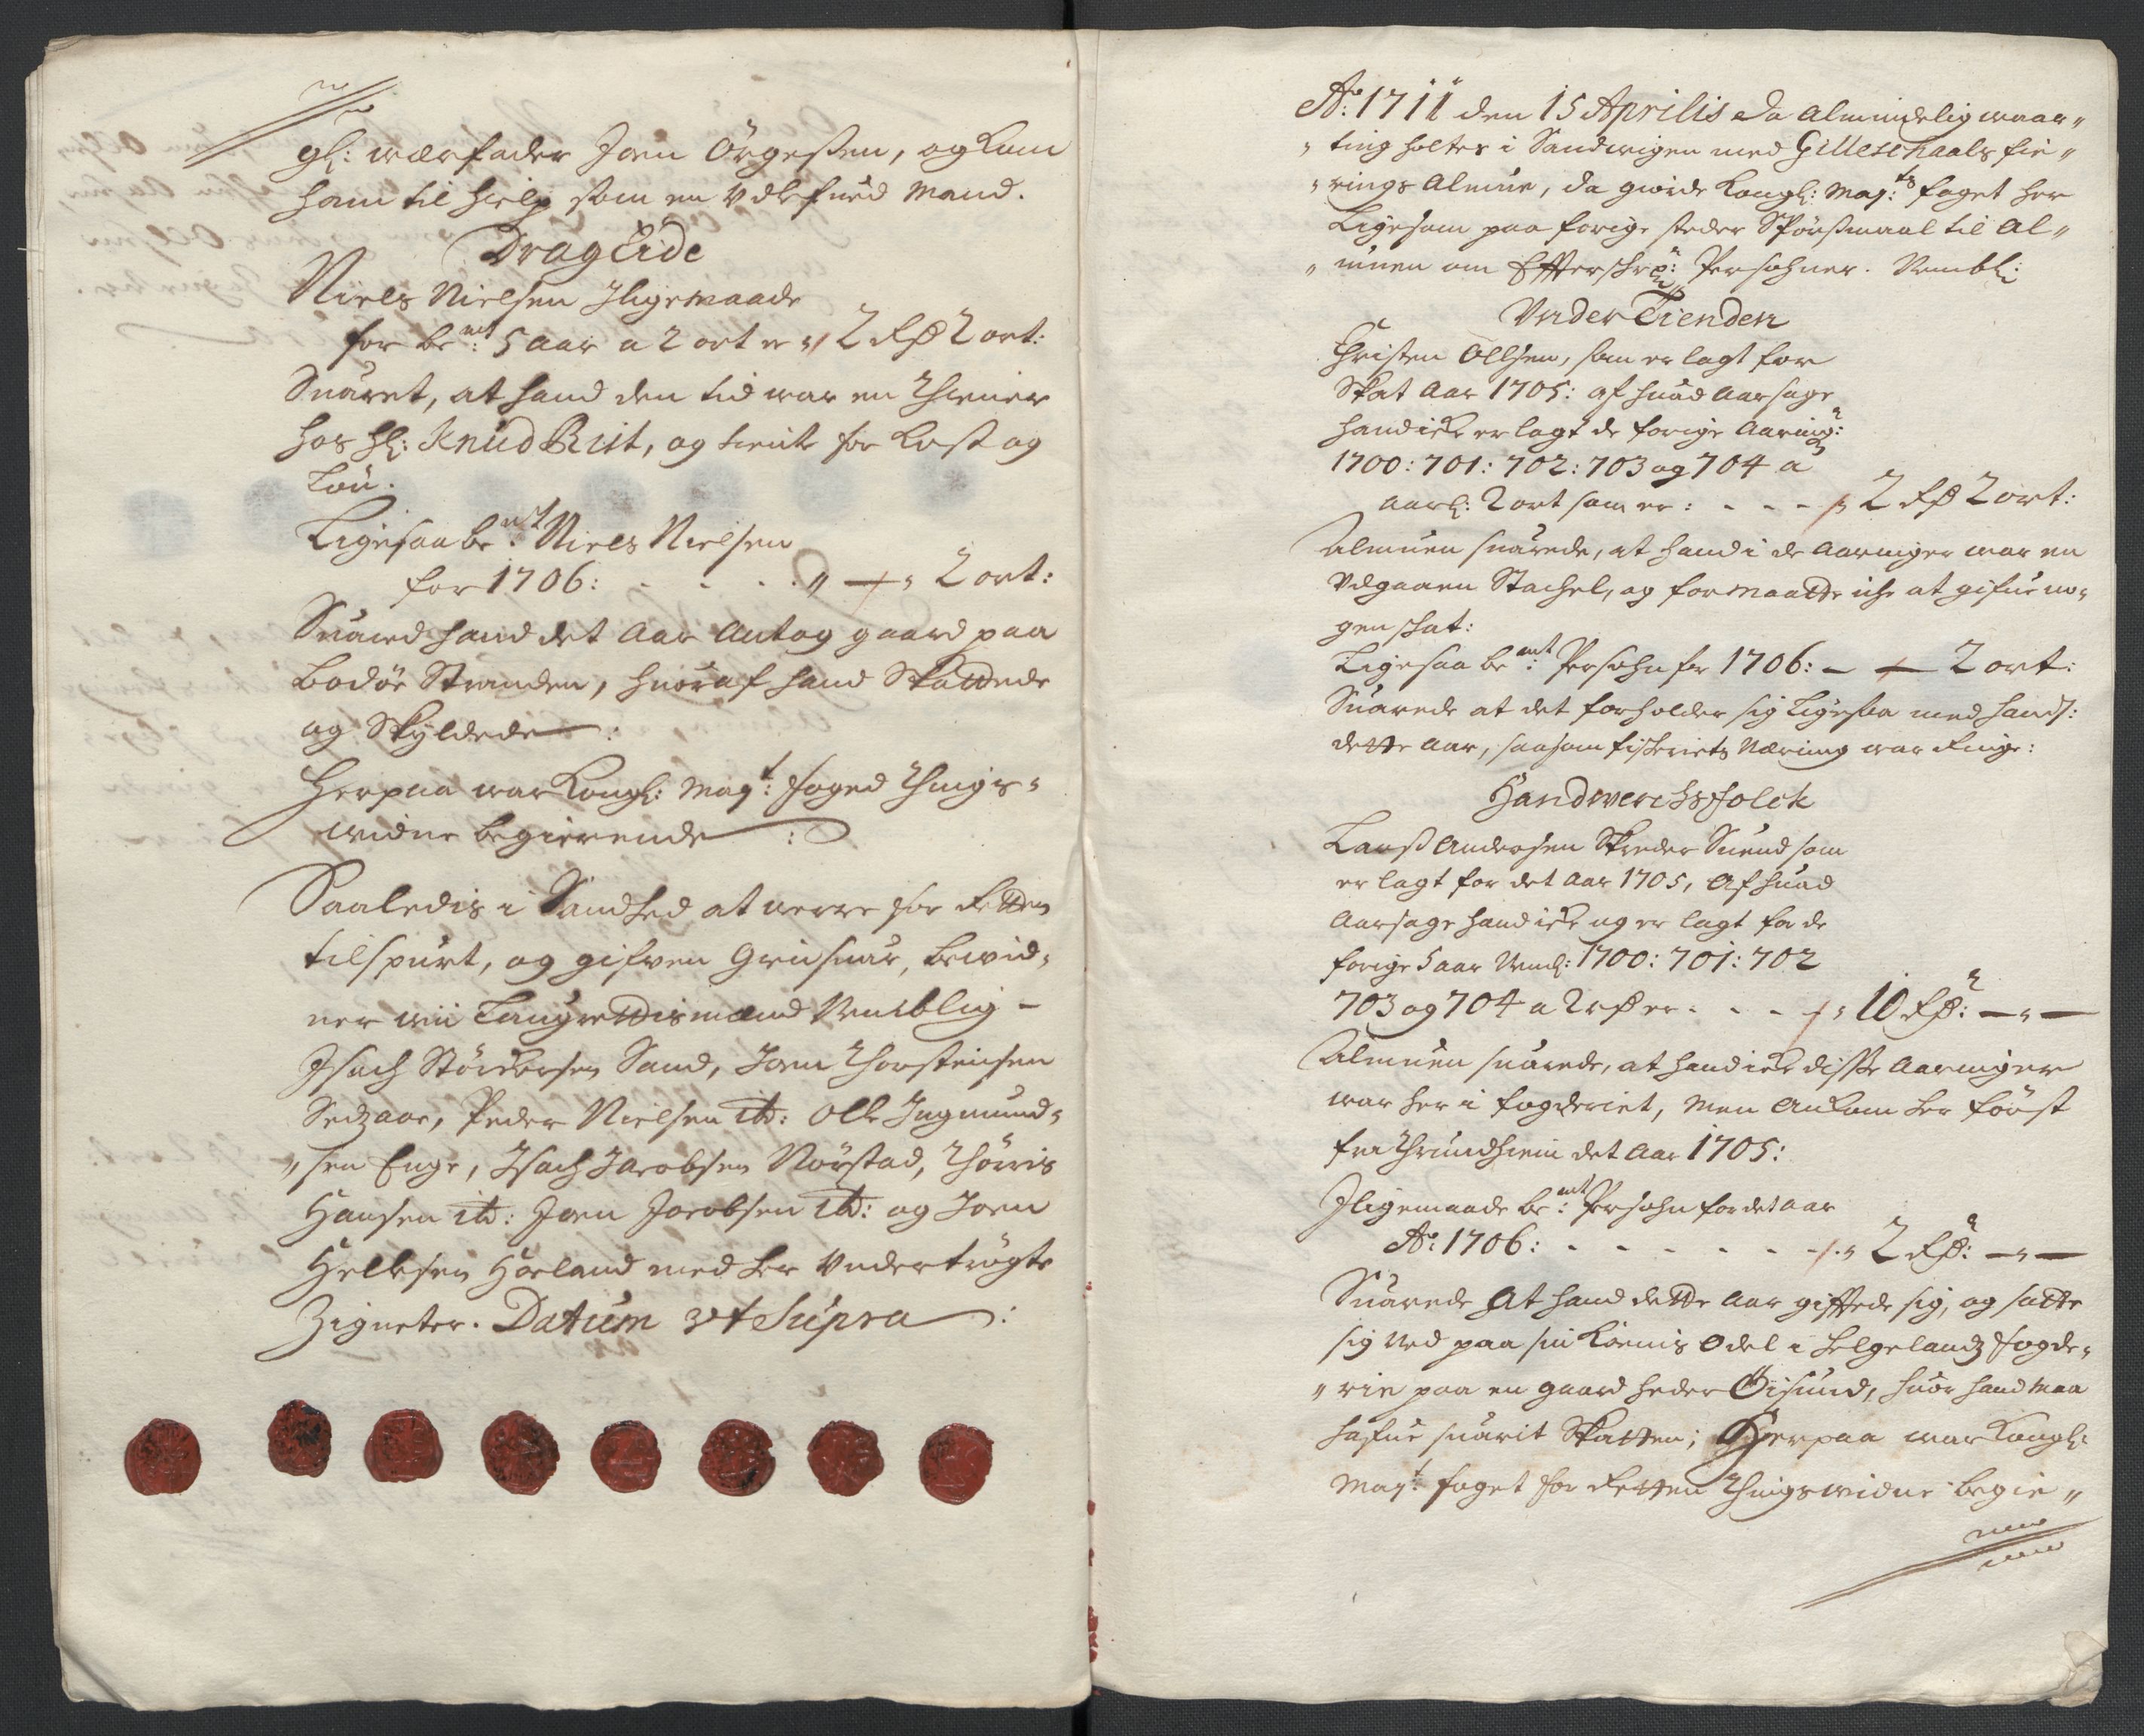 gl:værfader Joen Örgessen, og kom
ham til hielp som en Udlefued Mand.
Drag Eide
Niels Nielsen Jligemaade
for be:mt 5 aar a 2 ort er " 2 Rd 2 ort:
Suaret, at hand den tid war en Thiener
hos Hl: Knud Brit, og tiente for Kost og
Lön.
Ligesaa be:mt Niels Nielsen
for 1706: - - - " — " 2 ort:
Suared hand det Aar Antog gaard paa
Bodöe Stranden, huoraf hand Skattede
og Skÿldede :
Herpaa war Kongl: Mayt: foged Things-
widne begierende :
Saaledis i Sandhed at werre for Retten
tilspurt, og gifven Giensuar, bewid-
ner wii Laugrettismænd Nemblig -
Jsach Störckersen Sand, Joen Thorsteinsen
Sedzaae, Peder Nielsen itd: Olle Ingmund-
"sen Enge, Jsach Jacobsen Nörstad, Thörris
Hansen itd: Joen Jacobsen itd: og Joen
Hellesen Horland med her Undertrögte
Zigneter. Datum ut Supra :
Ao: 1711 den 15 Aprilis da Almindelig waar"
"ting holtes i Sandwigen med Gilleschaals fie"
"rings Almue, da giorde Kongl: May:ts foget her
Ligesom paa forige steder Spörssmaal til Al"
"muen om Effterschr: Persohner. Nembl:
Under Tienden
Christen Ollsen, som er lagt for
Skat Aar 1705: af huad Aarsage
hand icke er lagt de forige Aaring:r
1700: 701: 702: 703 og 704 a
aarl: 2 ort som er: - - - " 2 Rd 2 ort:
Almuen suarede, at hand i de Aaringer war en
Udgaaen Stachel, og formaatte iche at gifue no-
gen schat:
Ligesaa be:mt Persohn for 1706: - — 2 ort:
Suarede at det forholder sig Ligesaa med hans:
dette Aar, saasom fischeriets Næring war Ringe:
Handwerchsfolck
Lauss Andersen Skreder Suend som
er lagt for det Aar 1705, Af huad
Aarsage hand icke og er lagt for de
forige 5 aar Neml: 1700: 701: 702
703 og 704 a 2 rd er. - - - " 10 Rd:r — " —
Almuen suarede, at hand icke disse Aaringer
war her i fogderiet, Men Ankom her först
fra Thrundhiem det Aar 1705:
Jligemaade be:mt Persohn for det aar
Ao: 1706: - - - - - - " 2 Rd:r — " —
Suarede At hand dette Aar giftede sig, og satte
sig Ned paa sin Qoenis Odel i Helgelandz fogde-
"rie paa en gaard heder Öisund, huor hand maa
hafue suarit Skatten; Herpaa war Kongl:
Mayt: foget for Retten Thingswidne begie"